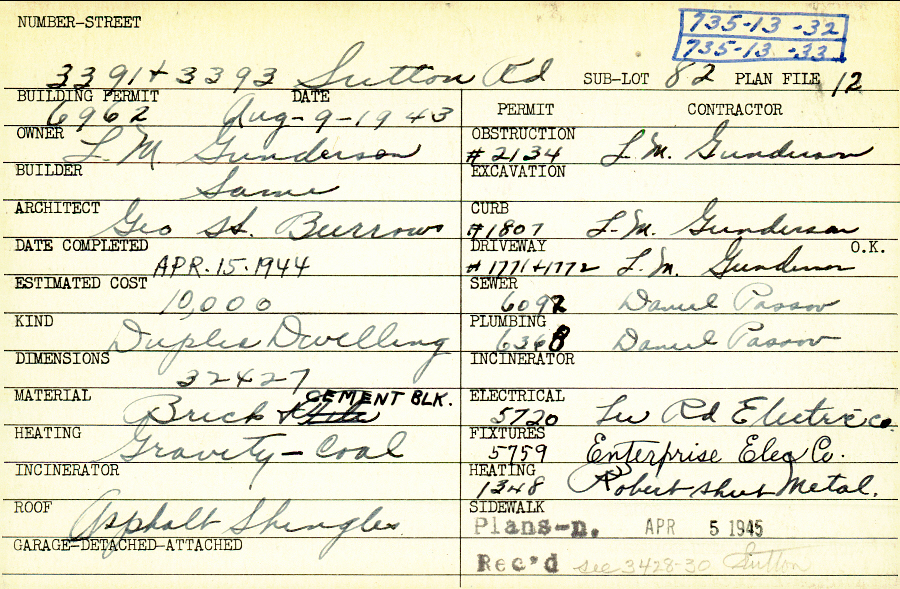 NUMBER-STREET
735-13-32
735-13-33
3391+3393 Sutton Rd SUB-LOT 82 PLAN FILE 12
BUILDING PERMIT DATE
6962 Aug-9-1943
OWNER L. M. Gunderson
BUILDER Same
ARCHITECT Geo H. Burrows
DATE COMPLETED
APR. 15. 1944
ESTIMATED COST
10,000
KIND Duplex Dwelling
DIMENSIONS
32x27
MATERIAL Brick & CEMENT BLK.
HEATING Gravity - Coal
INCINERATOR
ROOF Asphalt Shingles
GARAGE-DETACHED-ATTACHED
PERMIT CONTRACTOR
OBSTRUCTION
#2134 L. M. Gunderson
EXCAVATION
CURB
#1807 L. M. Gunderson
DRIVEWAY O.K.
#1771+1772 L. M. Gunderson
SEWER
6092 Daniel Passov
PLUMBING
6368 Daniel Passov
INCINERATOR
ELECTRICAL
5720 Rd Electric co.
FIXTURES
5759 Enterprise Elec Co.
HEATING
1348 Robert Sheet Metal.
SIDEWALK
Plans-n. APR 5 1945
Rec'd see 3428-30 Sutton